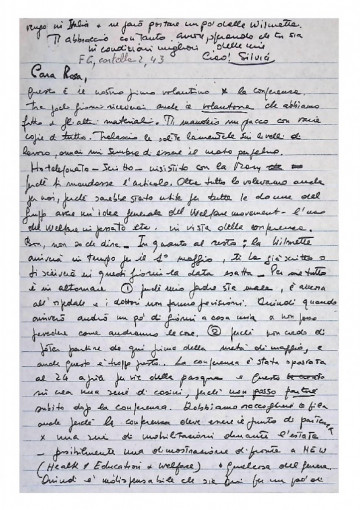 vengo in Italia e mi farò portare un po' delle Wilmette.
Ti abbraccio con tanto amore, sperando che tu sia
in condizioni migliori delle mie
F6, cartella 2, 43 Ciao! Silvia
Cara Rosa,
questo è il nostro primo volantino x la conferenza.
Tra pochi giorni riceverai anche il volantone che abbiamo
fatto e gli altri materiali. Ti manderò un pacco con varie
copie di tutto. Tralascio le solite lamentele sui livelli di
lavoro, ormai mi sembro di essere il moto perpetuo.
Ho telefonato - scritto - insistito con la Mary
perché ti mandasse l'articolo. Oltre tutto lo volevamo anche
per noi, perché sarebbe stato utile per tutte le donne del
gruppo avere un'idea generale del Welfare movement - l'uso
del Welfare in passato etc. in vista della conferenza.
Boh, non so che dire. In quanto al resto: la Wilmette
arriverà in tempo per il 1° maggio, ti ha già scritto o
ti scriverà in questi giorni la data esatta - Per me tutto
è in altomare ① perché mio padre sta male, è ancora
all'ospedale e i dottori non fanno previsioni. Quindi quando
arriverò andrò un po' di giorni a casa mia e non posso
prevedere come andranno le cose, ② perché non credo di
poter partire da qui prima della metà di maggio, e
anche questo è troppo presto. La conferenza è stata spostata
al 24 aprile per via della pasqua e questo
crea una serie di casini, perché non posso partire
subito dopo la conferenza. Dobbiamo raccogliere le fila
anche perché la conferenza deve essere il punto di partenza
x una serie di mobilitazioni durante l'estate
- possibilmente una dimostrazione di fronte a HEW
(Health & Education & Welfare) o qualcosa del genere.
Quindi è indispensabile che stia qui per un po' di